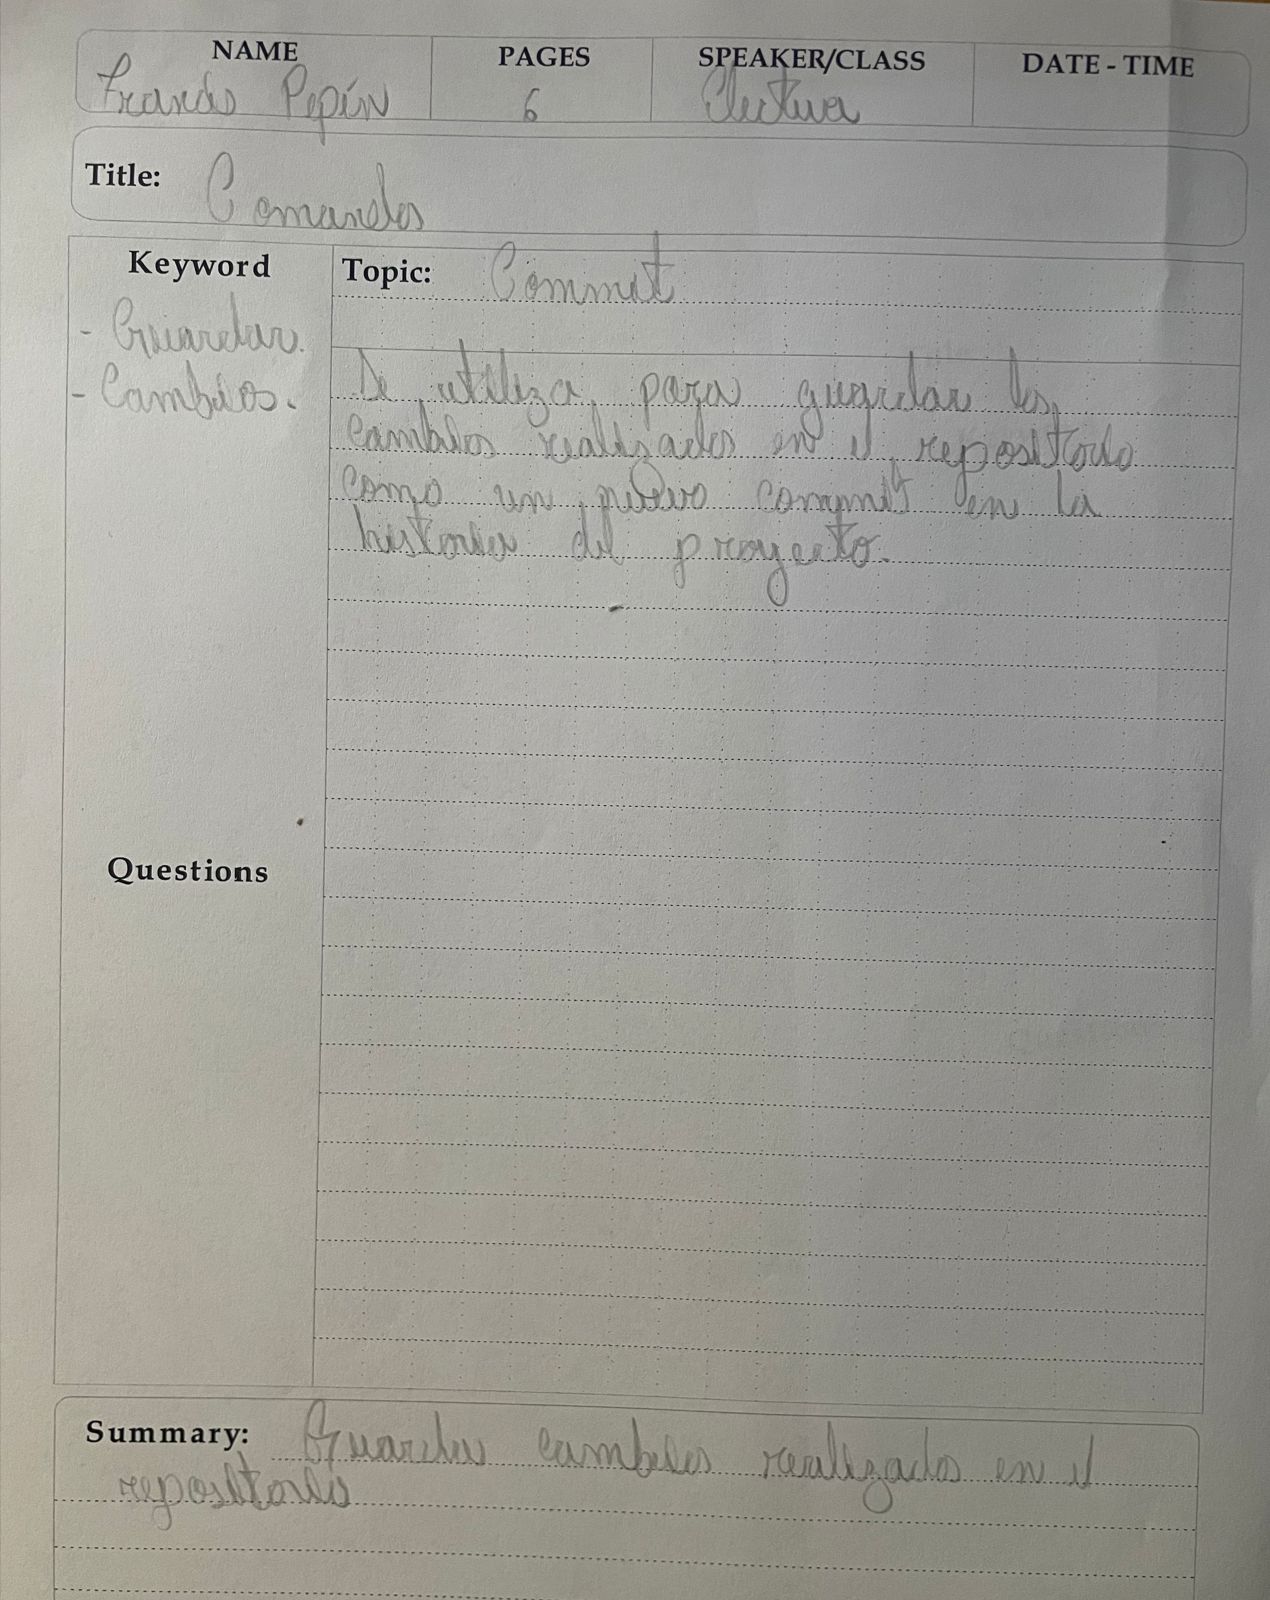 NAME PAGES SPEAKER/CLASS DATE - TIME
Francis Pepín 6 Electiva
Title: Comandos
Keyword Topic: Commit
- Guardar.
- Cambios.
Se utiliza para guardar los
cambios realizados en el repositorio
como un nuevo commit en la
historia del proyecto.
Questions
Summary: Guardar cambios realizados en el
repositorio